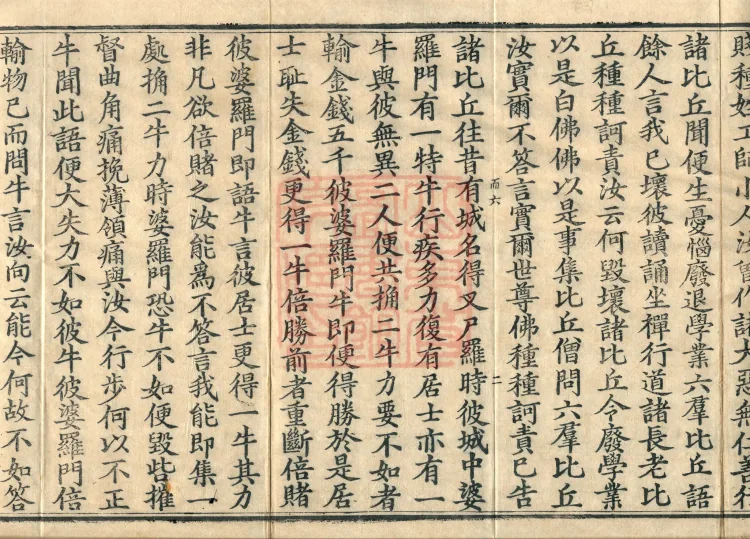 賤種姓工師小人汝曾作諸大惡無仁善行
諸比丘聞便生憂惱廢退學業六羣比丘語
餘人言我已壞彼讀誦坐禪行道諸長老比
丘種種訶責汝云何毀壞諸比丘令廢學業
以是白佛佛以是事集比丘僧問六羣比丘
汝實爾不答言實爾世尊佛種種訶責已告
而六 二
諸比丘往昔有城名得叉尸羅時彼城中婆
羅門有一特牛行疾多力復有居士亦有一
牛與彼無異二人便共捔二牛力要不如者
輸金錢五千彼婆羅門牛即便得勝於是居
士恥失金錢更得一牛倍勝前者重斷倍賭
彼婆羅門即語牛言彼居士更得一牛其力
非凡欲倍賭之汝能爲不答言我能即集一
處捔二牛力時婆羅門恐牛不如便毀呰摧
督曲角痛挽薄領痛與汝今行步何以不正
牛聞此語便大失力不如彼牛彼婆羅門倍
輸物已而問牛言汝向云能今何故不如答